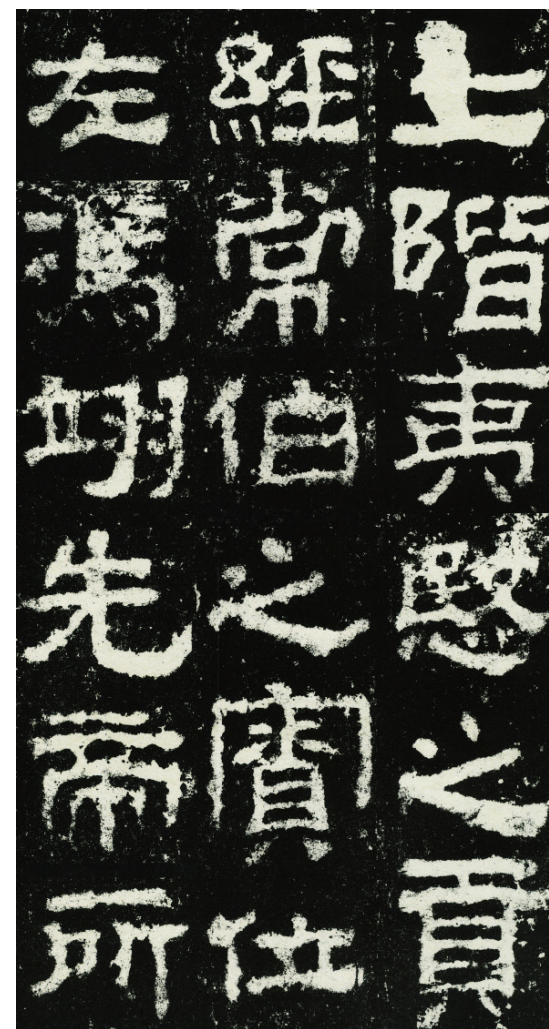 上階夷愍之貢
經常伯之寮位
左馮翊先帝所